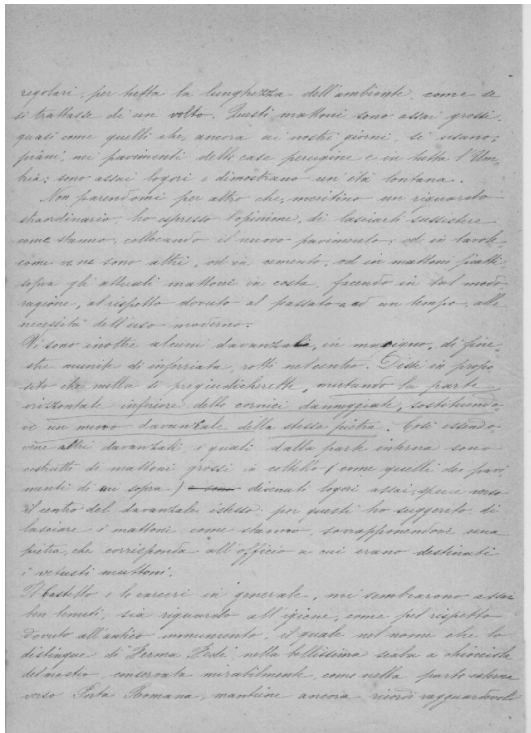 regolari, per tutta la lunghezza dell'ambiente, come se
si trattasse di un volto. Questi mattoni sono assai grossi,
quasi come quelli che, ancora ai nostri giorni, si usano,
piani, nei pavimenti delle case perugine e in tutta l'Um-
bria; sono assai logori e dimostrano un'età lontana.
Non parendomi per altro che meritino un riguardo
straordinario, ho espresso l'opinione, di lasciarli sussistere
come stanno, collocando il nuovo pavimento, od in tavole
come ve ne sono altri, od in cemento, od in mattoni piatti
sopra gli attuali mattoni in costa, facendo in tal mod
ragione, al rispetto dovuto al passato e ad un tempo, alle
necessità dell'uso moderno.
Vi sono inoltre alcuni davanzali, in macigno, di fine-
stre munite di inferriata, rotti nel centro. Dissi in propo-
sito che nulla si pregiudicherebbe, mutando la parte
orizzontale inferiore delle cornici danneggiate, sostituendo-
vi un nuovo davanzale della stessa pietra. Così essendo-
vene altri davanzali, i quali dalla parte interna sono
costrutti di mattoni grossi a coltello (come quelli dei pavi-
menti di cui sopra) divenuti logori assai, specie verso
il centro del davanzale istesso, per questi ho suggerito di
lasciare i mattoni come stanno, sovrapponendovi una
pietra, che corrisponda all'officio a cui erano destinati
i vetusti mattoni.
Il Castello e le carceri in generale, mi sembrarono assai
ben tenuti, sia riguardo all'igiene, come pel rispetto
dovuto all'antico monumento, il quale nel nome che lo
distingue di Ferma Fede, nella bellissima scala a chiocciola
del mastio, conservata mirabilmente, come nella parte esterna
verso Porta Romana, mantiene ancora ricordi ragguardevoli